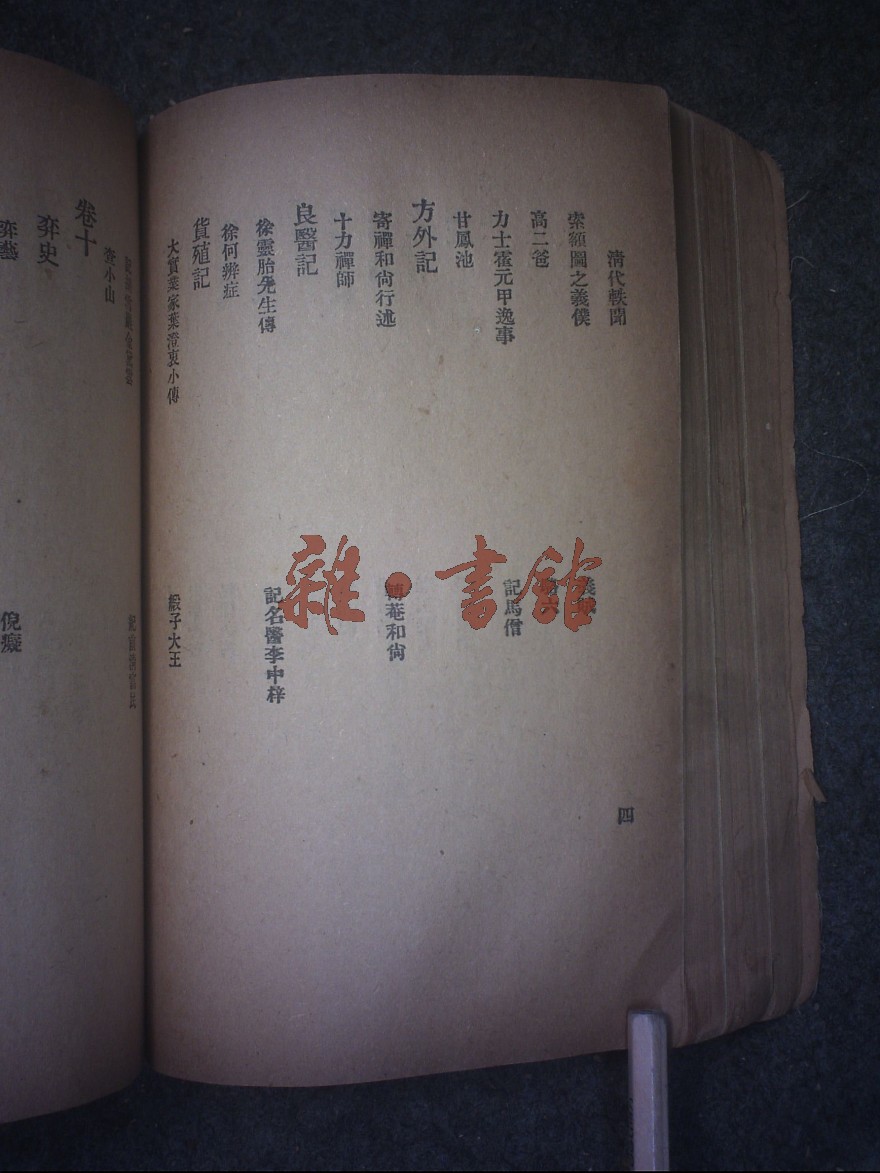 清代軼聞
索額圖之義僕
高二爸
力士霍元甲逸事
記馬僧
甘鳳池
方外記
寄禪和尚行述
轉菴和尚
十力禪師
良醫記
徐靈胎先生傳
記名醫李中梓
徐何辨症
貨殖記
大實業家葉澄衷小傳
緞子大王
四
查小山
卷十
弈史
弈藝
倪癡
雜·書館